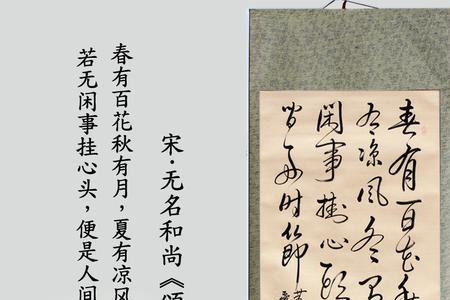 宋·无名和尚《颂
春有百花秋有月，夏有凉风
若无闲事挂心头，便是人间
春有百花秋
有凉风冬
闲事掛心
时節